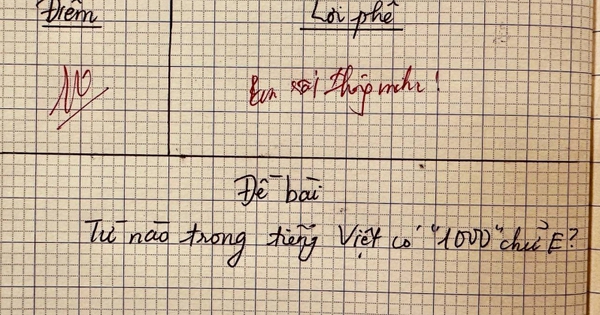 Điểm Lời phê
10 Em rất thông minh!
Đề bài
Từ nào trong tiếng Việt có "1000" chữ E?